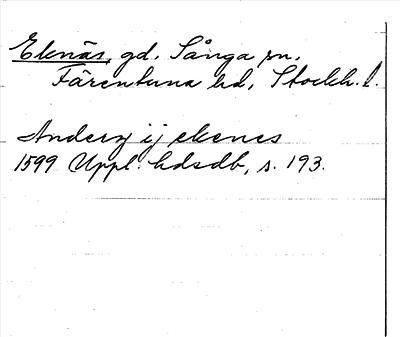 Eknäs, gd. Sånga sn.
Färentuna hd, Stockh. l.
Anderz ij ekenes
1599 Uppl. hdsdb, s. 193.